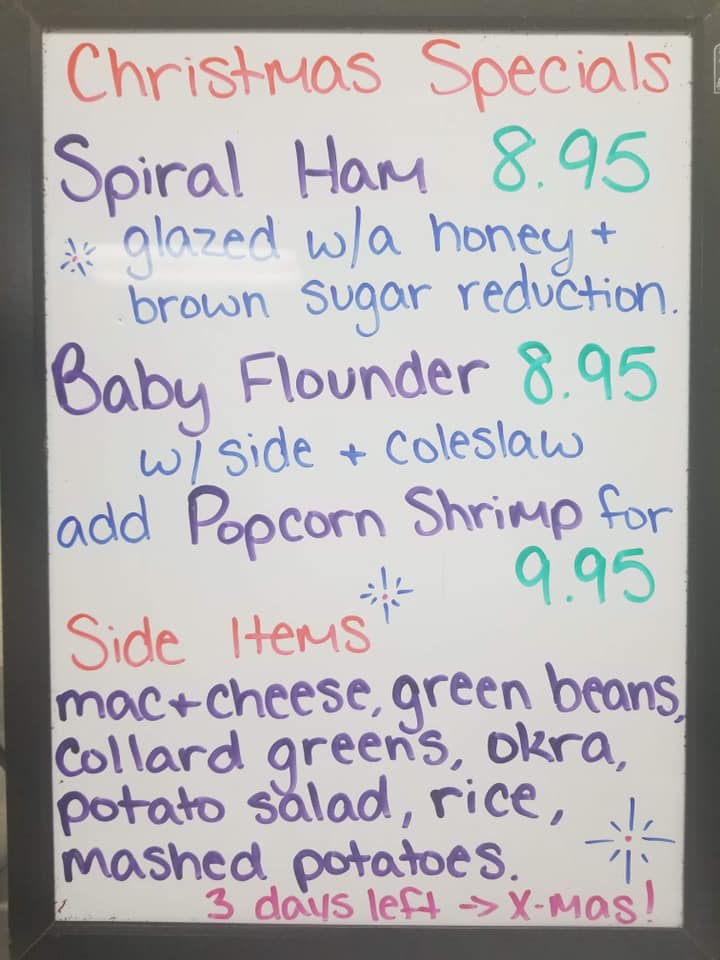 Christmas Specials
Spiral Ham 8.95
glazed w/a honey +
brown sugar reduction.
Baby Flounder 8.95
w/ side + coleslaw
add Popcorn Shrimp for
9.95
Side Items
mac+cheese, green beans,
collard greens, okra,
potato salad, rice,
mashed potatoes.
3 days left -> X-mas!